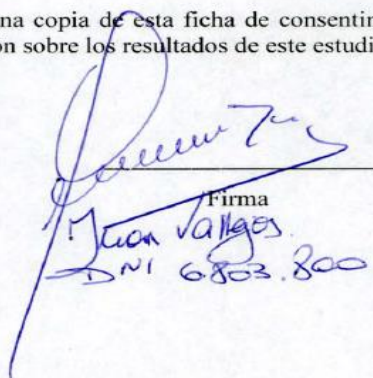 na copia de esta ficha de consentin
ón sobre los resultados de este estudi
Firma
Juan Vallejos
DNI 6.803.800